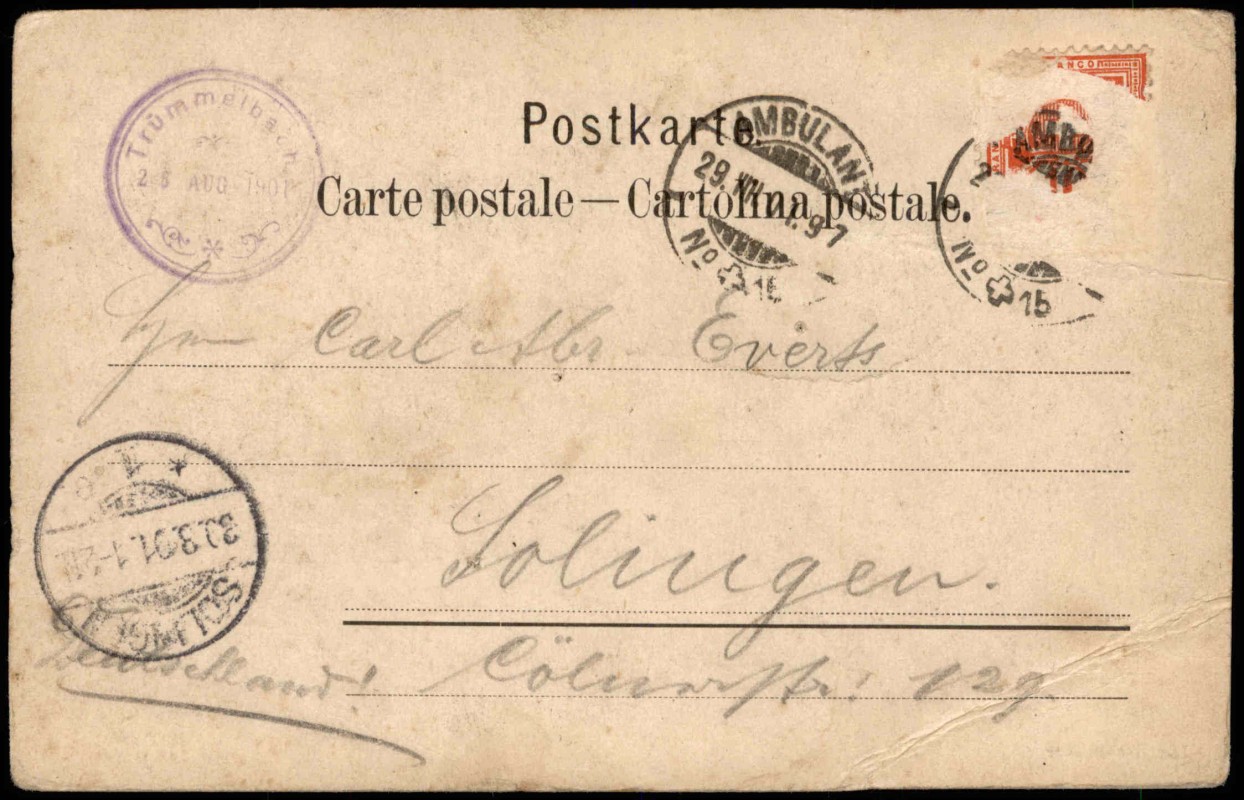 Trümmelbach
28 AUG 1901
Postkarte.
Carte postale — Cartolina postale.
AMBULANT
29. VIII. 01. 9
No 15
FRANCO
AMBU
No 15
Herrn Carl Abr. Everts
Solingen.
Cölnerstr. 129.
Deutschland!
SOLINGEN
30.8.01.1-2N.